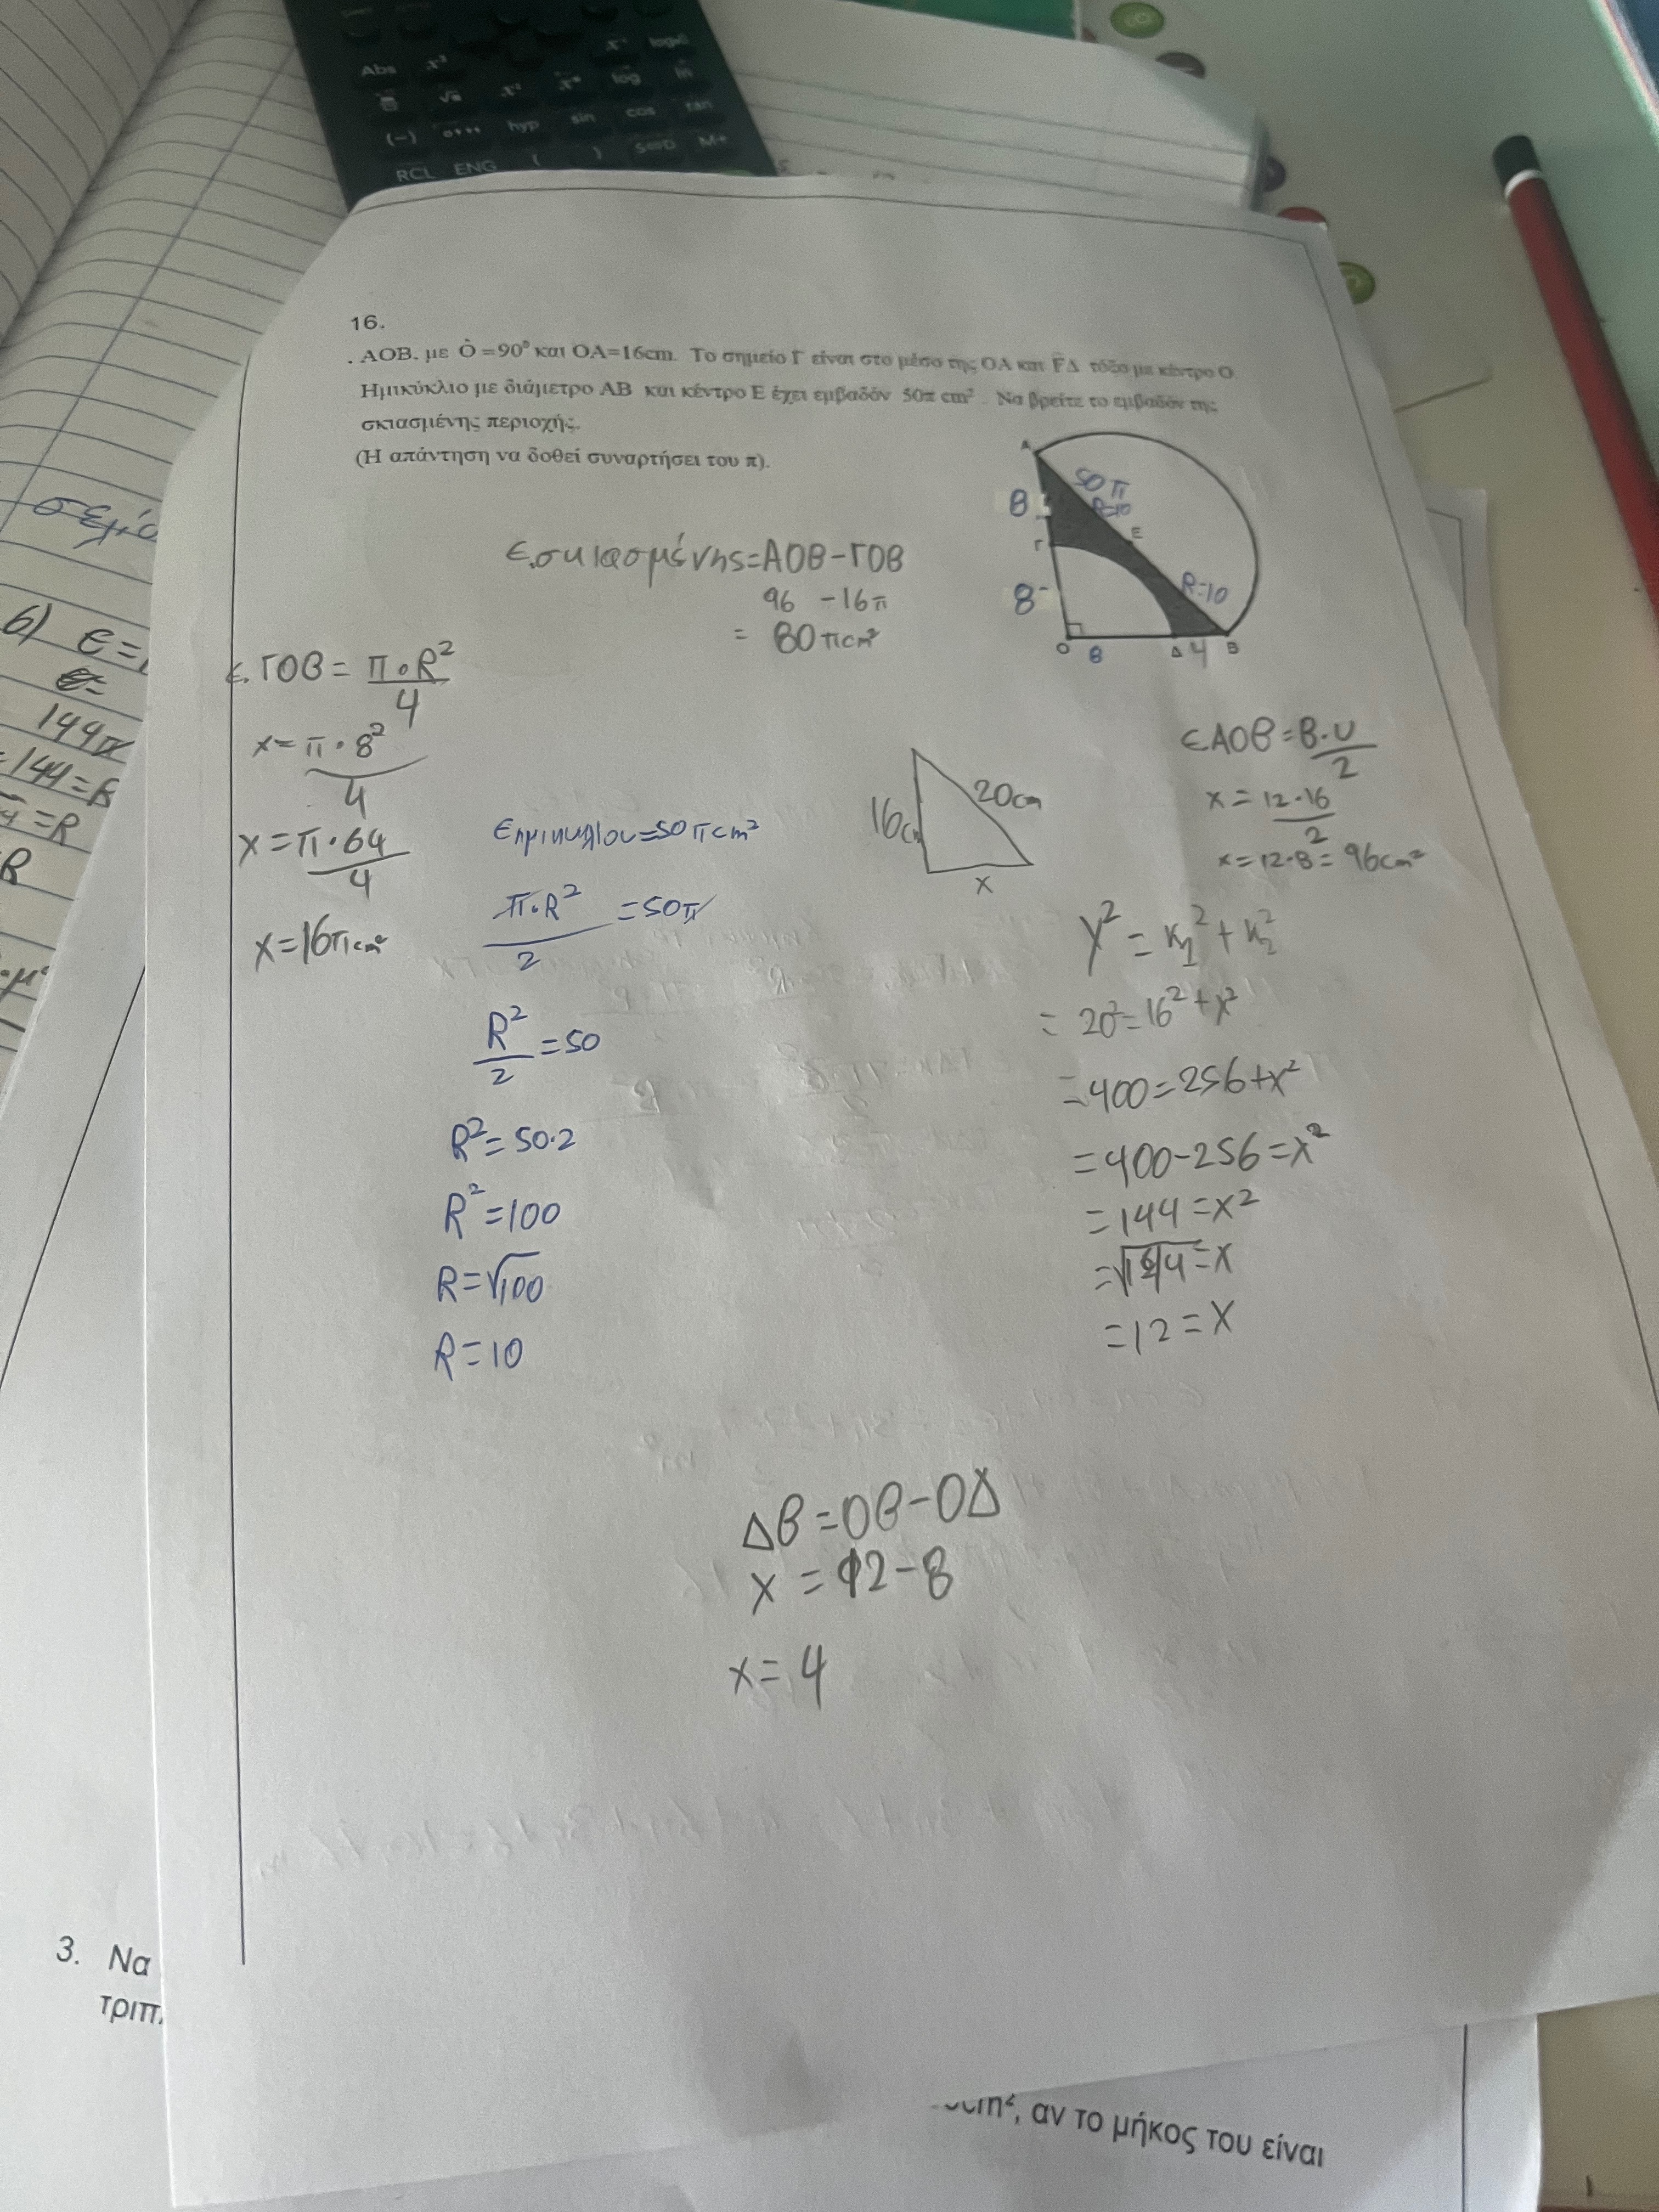 Abs x³ x⁻¹ log
√ x² log ln
(−) hyp sin cos tan
RCL ENG ( ) S⇔D M+
16.
. ΑΟΒ. με Ô =90⁰ και ΟΑ=16cm. Το σημείο Γ είναι στο μέσο της ΟΑ και ΓΔ τόξο με κέντρο Ο.
Ημικύκλιο με διάμετρο ΑΒ και κέντρο Ε έχει εμβαδόν 50π cm². Να βρείτε το εμβαδόν της
σκιασμένης περιοχής.
(Η απάντηση να δοθεί συναρτήσει του π).
Α
50π
R=10
8
Ε
Γ
R=10
8
Ο 8 Δ 4 Β
ε.σκιασμένης=ΑΟΒ-ΓΟΒ
96 -16π
= 80πcm²
ε.ΓΟΒ= π·R²/4
x=π·8²/4
x=π·64/4
x=16πcm²
εημικυκλίου=50πcm²
π·R²/2 =50π
R²/2=50
R²=50·2
R²=100
R=√100
R=10
16cm 20cm
x
εΑΟΒ=Β·υ/2
x=12·16/2
x=12·8=96cm²
Υ²=κ₁²+κ₂²
= 20²=16²+x²
=400=256+x²
=400-256=x²
=144=x²
=√144=x
=12=x
ΔΒ=ΟΒ-ΟΔ
x=12-8
x=4
6) ε=
ε=
144π
144=R
=R
R
3. Να
τριπ
cm², αν το μήκος του είναι